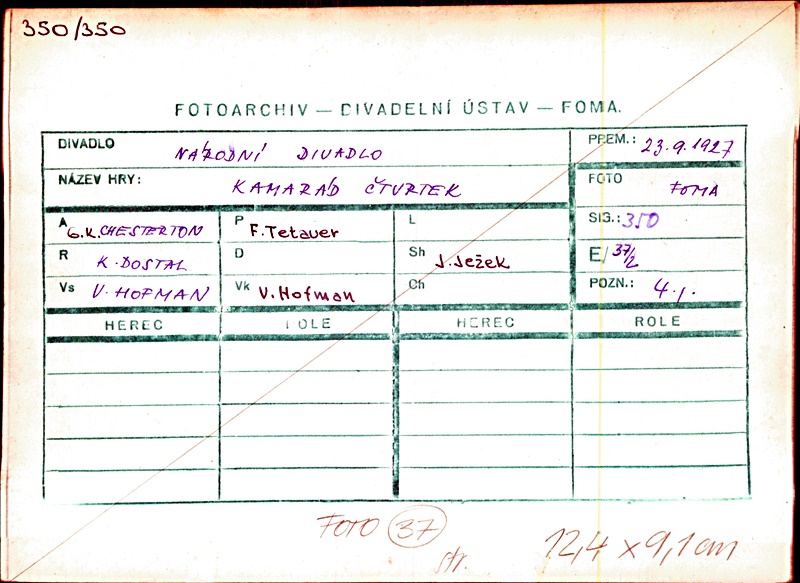 350/350
FOTOARCHIV — DIVADELNÍ ÚSTAV — FOMA.
DIVADLO NÁRODNÍ DIVADLO PREM.: 23.9.1927
NÁZEV HRY: KAMARÁD ČTVRTEK FOTO FOMA
A G.K.CHESTERTON P F.Tetauer L SIG.: 350
R K.DOSTAL D Sh J.Ježek E/ 37/2
Vs V.HOFMAN Vk V.Hofman Ch POZN.: 4.j.
HEREC ROLE HEREC ROLE
FOTO 37
str.
12,4 x 9,1 cm